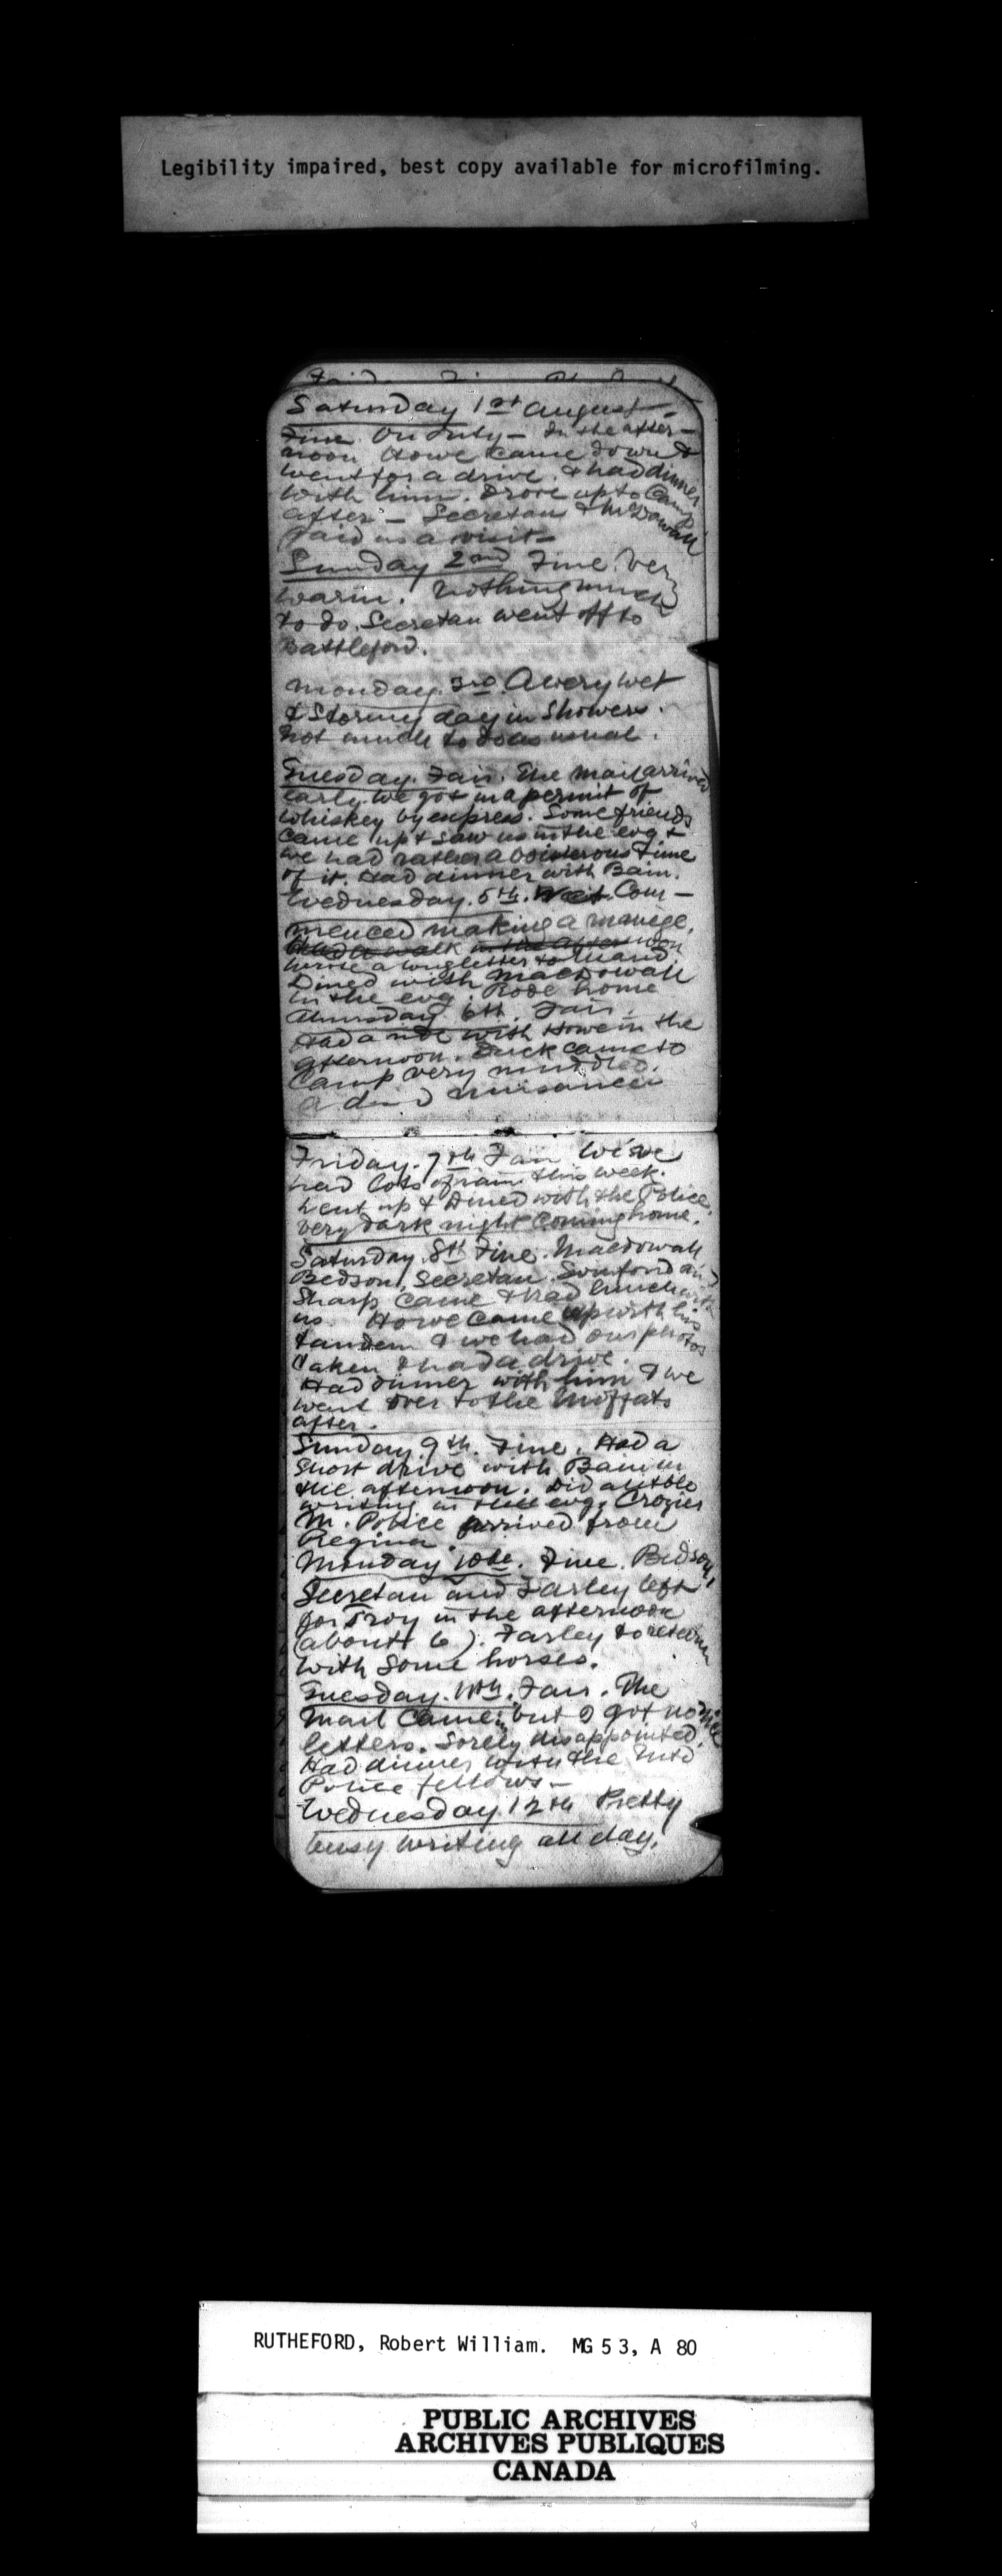 Legibility impaired, best copy available for microfilming.
Saturday 1st August -
Fine. On duty - In the after-
noon Howe came down &
went for a drive. & had dinner
with him. Drove up to Camp
after - Secretan & McDowall
paid us a visit -
Sunday 2nd Fine. Very
warm. Nothing much
to do. Secretan went off to
Battleford.
Monday. 3rd. A very wet
& Stormy day in Showers.
Not much to do as usual.
Tuesday. Fair. The mail arrived
early. We got in a permit of
whiskey by express. Some friends
came up & saw us in the evg &
we had rather a boisterous time
of it. Had dinner with Bain.
Wednesday. 5th. Wet. Com-
menced making a manège.
Had a walk in the afternoon
wrote a long letter to Maud
Dined with MacDowall
in the evg. Rode home
Thursday 6th. Fair.
Had a ride with Howe in the
afternoon. Duck came to
Camp very muddled.
A d--d nuisance
Friday. 7th Fair We've
had lots of rain this week.
Went up & Dined with the Police.
Very dark night coming home.
Saturday. 8th Fine. Macdowall
Bedson, Secretan. and
Sharp came & had lunch with
us. Howe came up with his
tandem & we had our photos
taken & had a drive.
Had dinner with him & we
went over to the Moffats
after.
Sunday 9th. Fine. Had a
short drive with Bain in
the afternoon. Did a little
writing in the evg. Crozier
M. Police arrived from
Regina.
Monday 10th. Fine. Bedson,
Secretan and Farley left
for Troy in the afternoon
(about 6). Farley to return
with some horses.
Tuesday. 11th. Fair. The
mail came in but I got no nice
letters. Sorely disappointed.
Had dinner with the Mtd
Police fellows -
Wednesday 12th Pretty
busy writing all day.
RUTHEFORD, Robert William. MG 5 3, A 80
PUBLIC ARCHIVES
ARCHIVES PUBLIQUES
CANADA